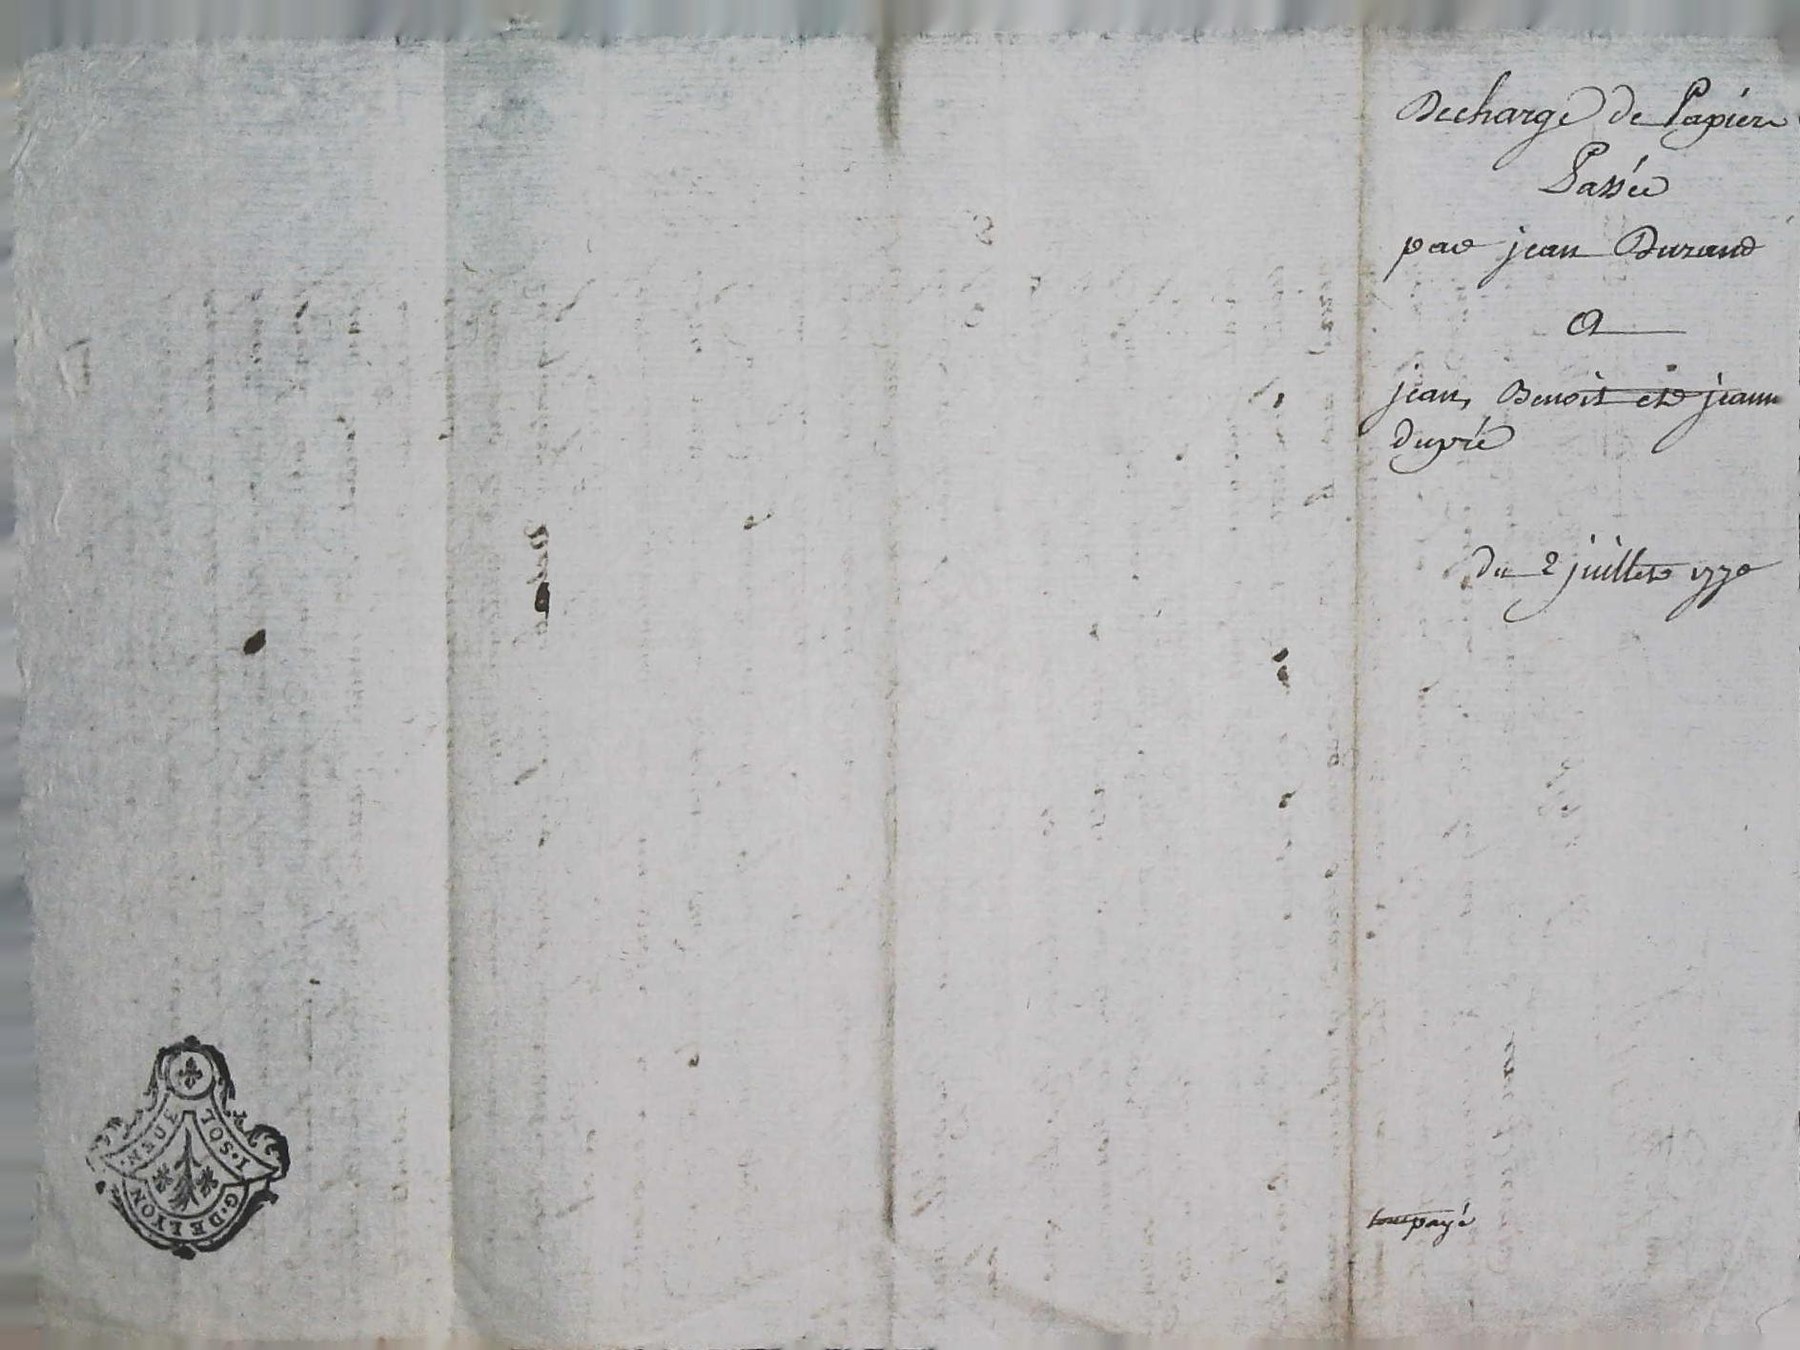 Decharge de Papiers
Passée
par jean Durand
A
jean, Benoit et jeanne
dupré
du 2 juillet 1770
tout payé
1. SOL
G. DE LYON